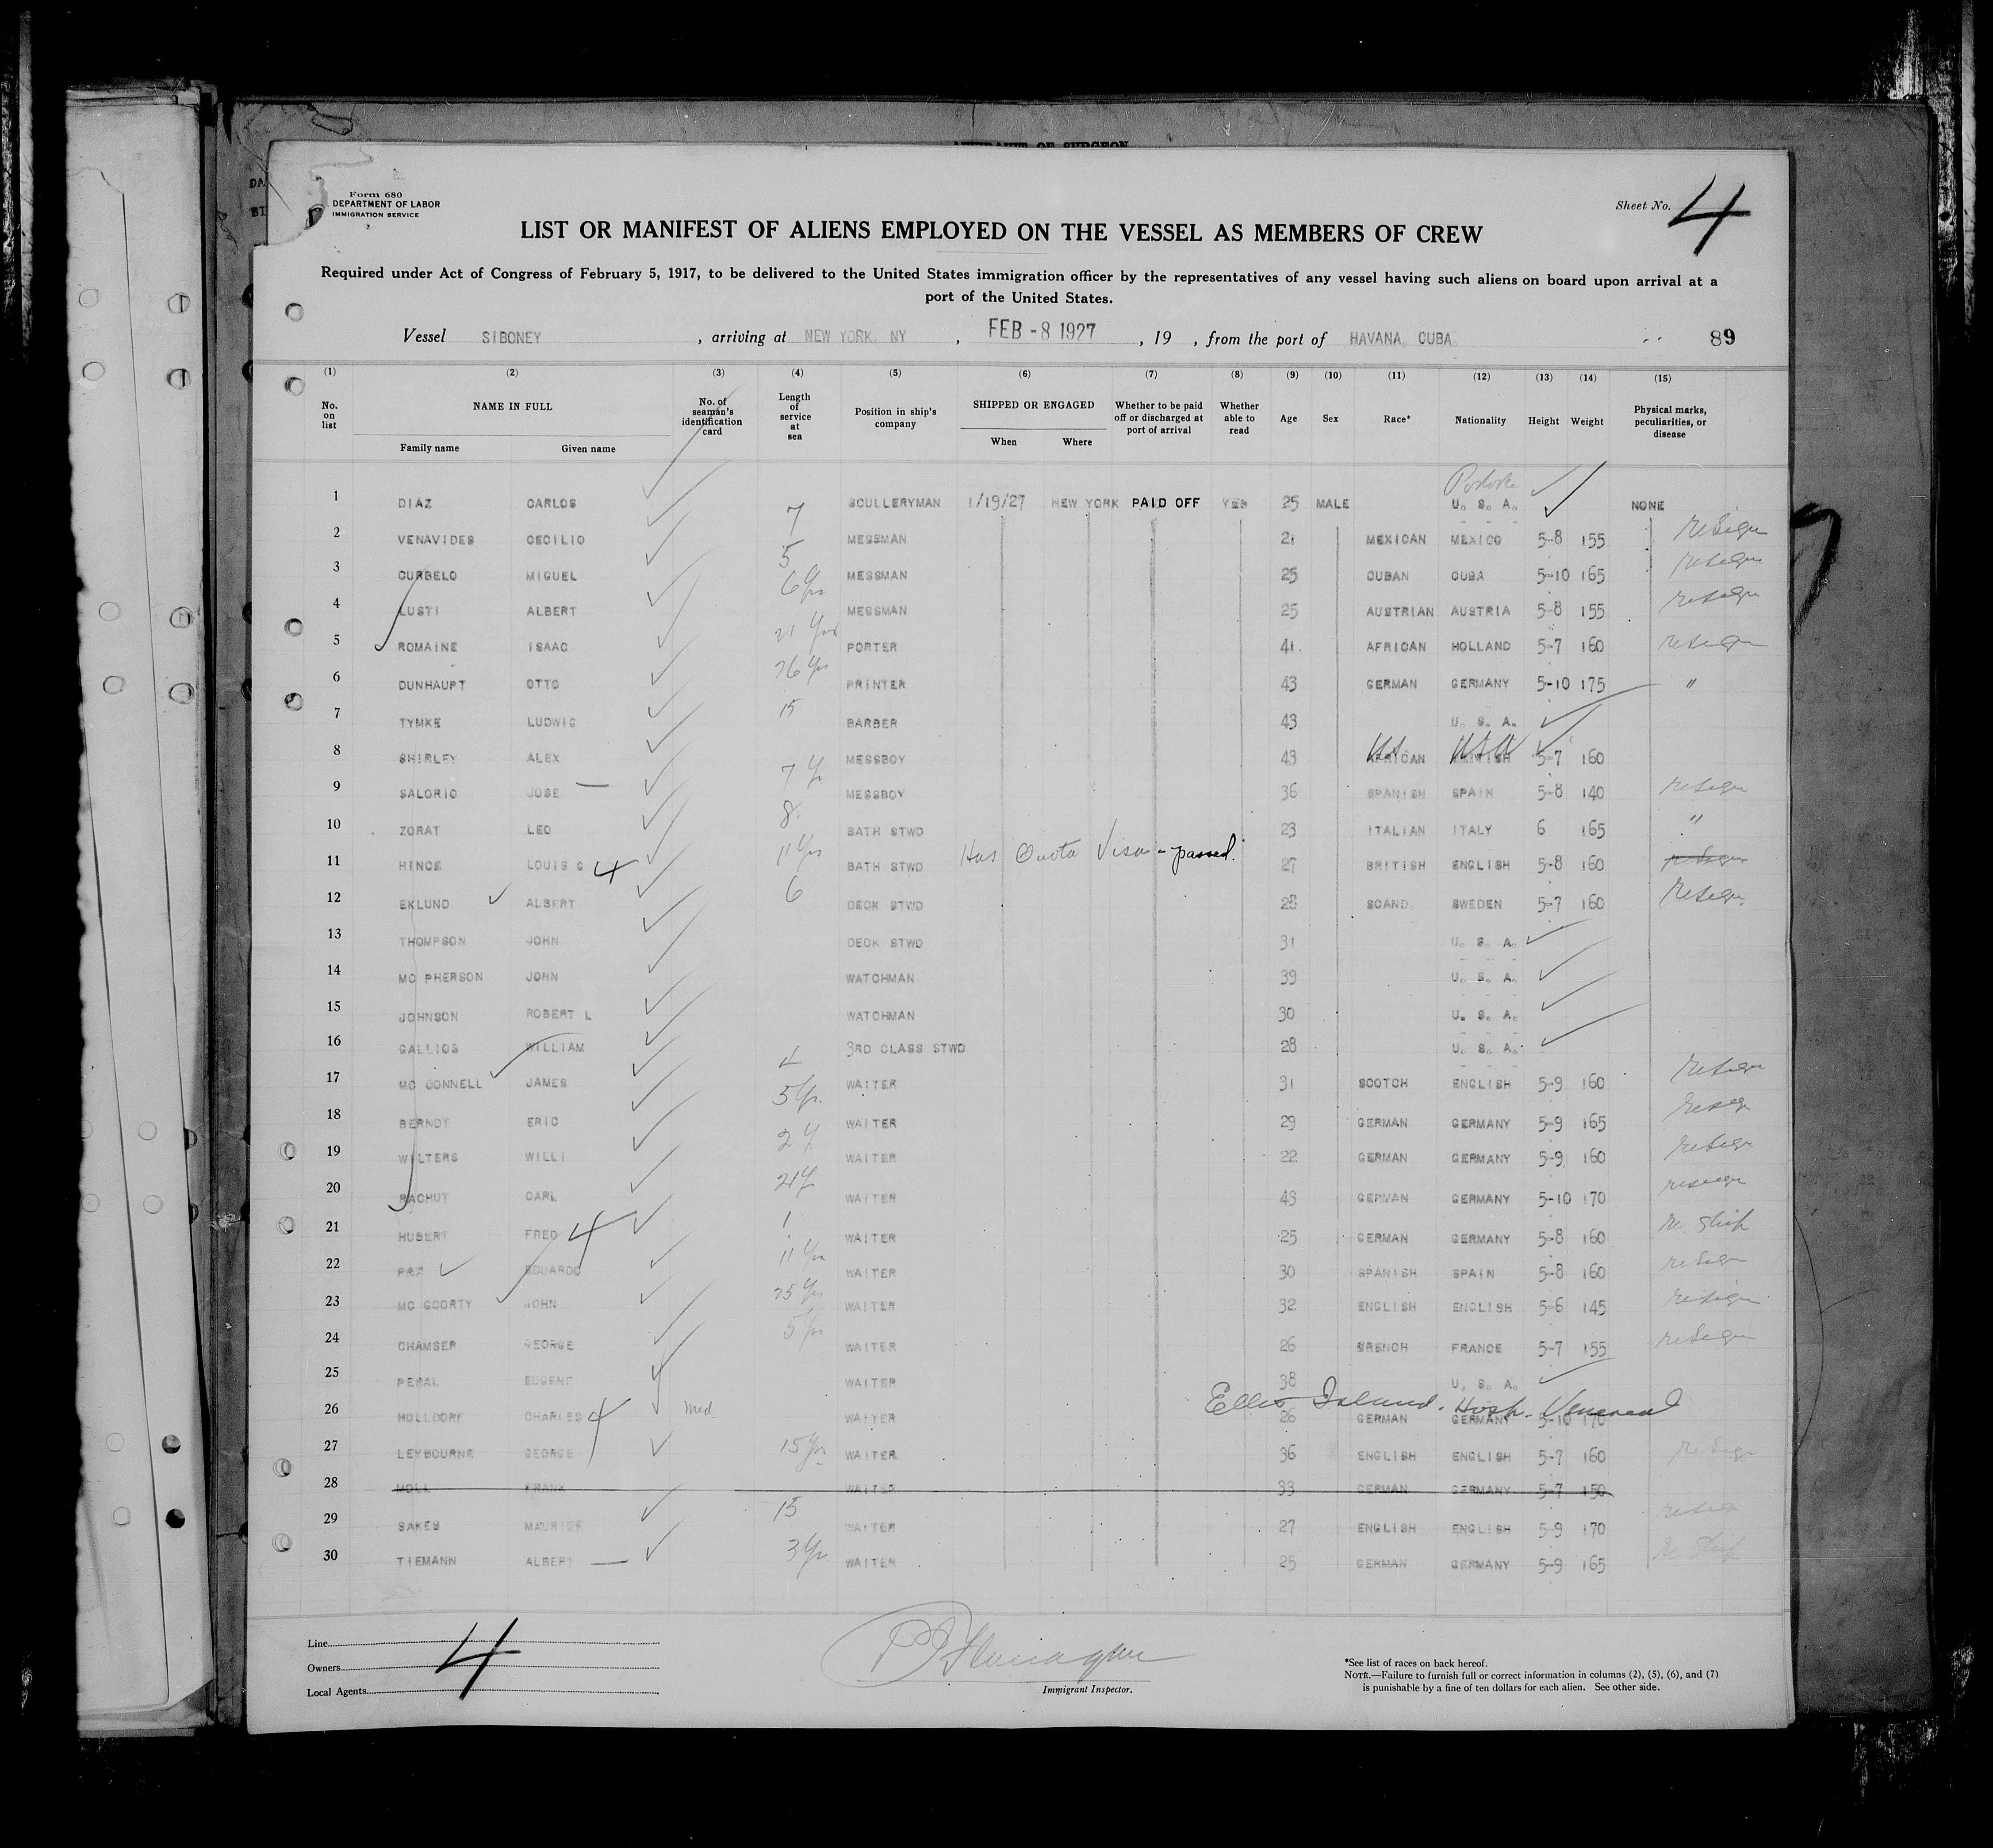 AFFIDAVIT OF SURGEON
Form 680
DEPARTMENT OF LABOR
IMMIGRATION SERVICE
Sheet No. 4
LIST OR MANIFEST OF ALIENS EMPLOYED ON THE VESSEL AS MEMBERS OF CREW
Required under Act of Congress of February 5, 1917, to be delivered to the United States immigration officer by the representatives of any vessel having such aliens on board upon arrival at a
port of the United States.
Vessel SIBONEY , arriving at NEW YORK, NY , FEB -8 1927 , 19 , from the port of HAVANA, CUBA. 89
(1) (2) (3) (4) (5) (6) (7) (8) (9) (10) (11) (12) (13) (14) (15)
No. on list NAME IN FULL Family name Given name No. of seaman's identification card Length of service at sea Position in ship's company SHIPPED OR ENGAGED When Where Whether to be paid off or discharged at port of arrival Whether able to read Age Sex Race* Nationality Height Weight Physical marks, peculiarities, or disease
1 DIAZ CARLOS SCULLERYMAN 1/19/27 NEW YORK PAID OFF YES 25 MALE U. S. A. NONE
2 VENAVIDES CECILIO 7 MESSMAN 21 MEXICAN MEXICO 5-8 155 resign
3 CURBELO MIGUEL 5 MESSMAN 25 CUBAN CUBA 5-10 165 resign
4 LUSTI ALBERT 6 yrs MESSMAN 25 AUSTRIAN AUSTRIA 5-8 155 resign
5 ROMAINE ISAAC 21 yrs PORTER 41 AFRICAN HOLLAND 5-7 160 resign
6 DUNHAUPT OTTO 26 yrs PRINTER 43 GERMAN GERMANY 5-10 175 "
7 TYMKE LUDWIG 15 BARBER 43 U. S. A.
8 SHIRLEY ALEX MESSBOY 43 AFRICAN USA 5-7 160
9 SALORIO JOSE 7 y MESSBOY 36 SPANISH SPAIN 5-8 140 resign
10 ZORAT LEO 8 BATH STWD 23 ITALIAN ITALY 6 165 "
11 HINCE LOUIS G 4 11 yrs BATH STWD Has Quota Visa - passed. 27 BRITISH ENGLISH 5-8 160 resign
12 EKLUND ALBERT 6 DECK STWD 28 SCAND. SWEDEN 5-7 160 resign
13 THOMPSON JOHN DECK STWD 31 U. S. A.
14 MC PHERSON JOHN WATCHMAN 39 U. S. A.
15 JOHNSON ROBERT L WATCHMAN 30 U. S. A.
16 GALLIOS WILLIAM 3RD CLASS STWD 28 U. S. A.
17 MC CONNELL JAMES 4 WAITER 31 SCOTCH ENGLISH 5-9 160 resign
18 BERNDT ERIC 5 yr. WAITER 29 GERMAN GERMANY 5-9 165 resign
19 WILTERS WILLI 2 y WAITER 22 GERMAN GERMANY 5-9 160 resign
20 BACHUT CARL 21 y WAITER 43 GERMAN GERMANY 5-10 170 resign
21 HUBERT FRED 4 1 WAITER 25 GERMAN GERMANY 5-8 160 re ship
22 EDUARDO 11 yrs WAITER 30 SPANISH SPAIN 5-8 160 resign
23 MC GOORTY JOHN 25 yrs WAITER 32 ENGLISH ENGLISH 5-6 145 resign
24 CHAMSER GEORGE 5 yrs WAITER 26 FRENCH FRANCE 5-7 155 resign
25 PERAL EUGENE WAITER 38 U. S. A.
26 HOLLDORF CHARLES 4 med WAITER 26 GERMAN GERMANY 5-10 170 Ellis Island. Hosp. Venereal
27 LEYBOURNE GEORGE 15 yrs WAITER 36 ENGLISH ENGLISH 5-7 160 resign
28 MOLL FRANK WAITER 33 GERMAN GERMANY 5-7 150
29 SAKES MAURICE 15 WAITER 27 ENGLISH ENGLISH 5-9 170 resign
30 TIEMANN ALBERT 3 yr. WAITER 25 GERMAN GERMANY 5-9 165 re ship
Line
Owners
Local Agents
4
Immigrant Inspector.
*See list of races on back hereof.
NOTE.—Failure to furnish full or correct information in columns (2), (5), (6), and (7)
is punishable by a fine of ten dollars for each alien. See other side.